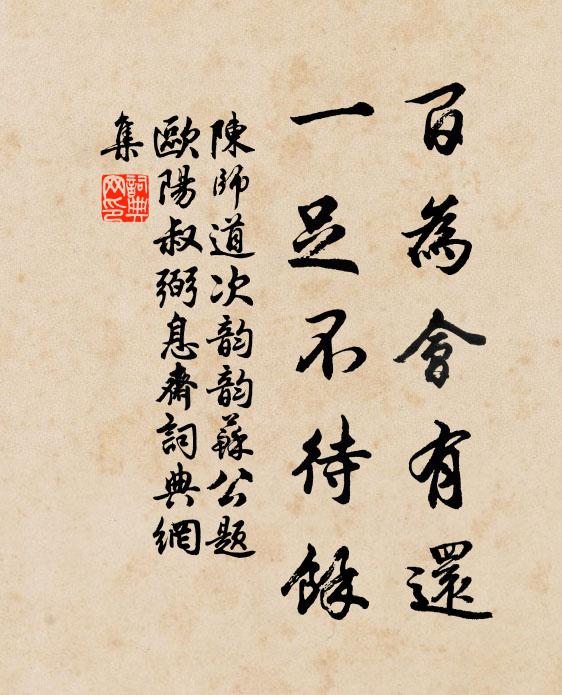 百為會有還
一足不待餘
陳師道次韵韵蘇公題
歐陽叔弼息齋詞典網
集
詞典網印